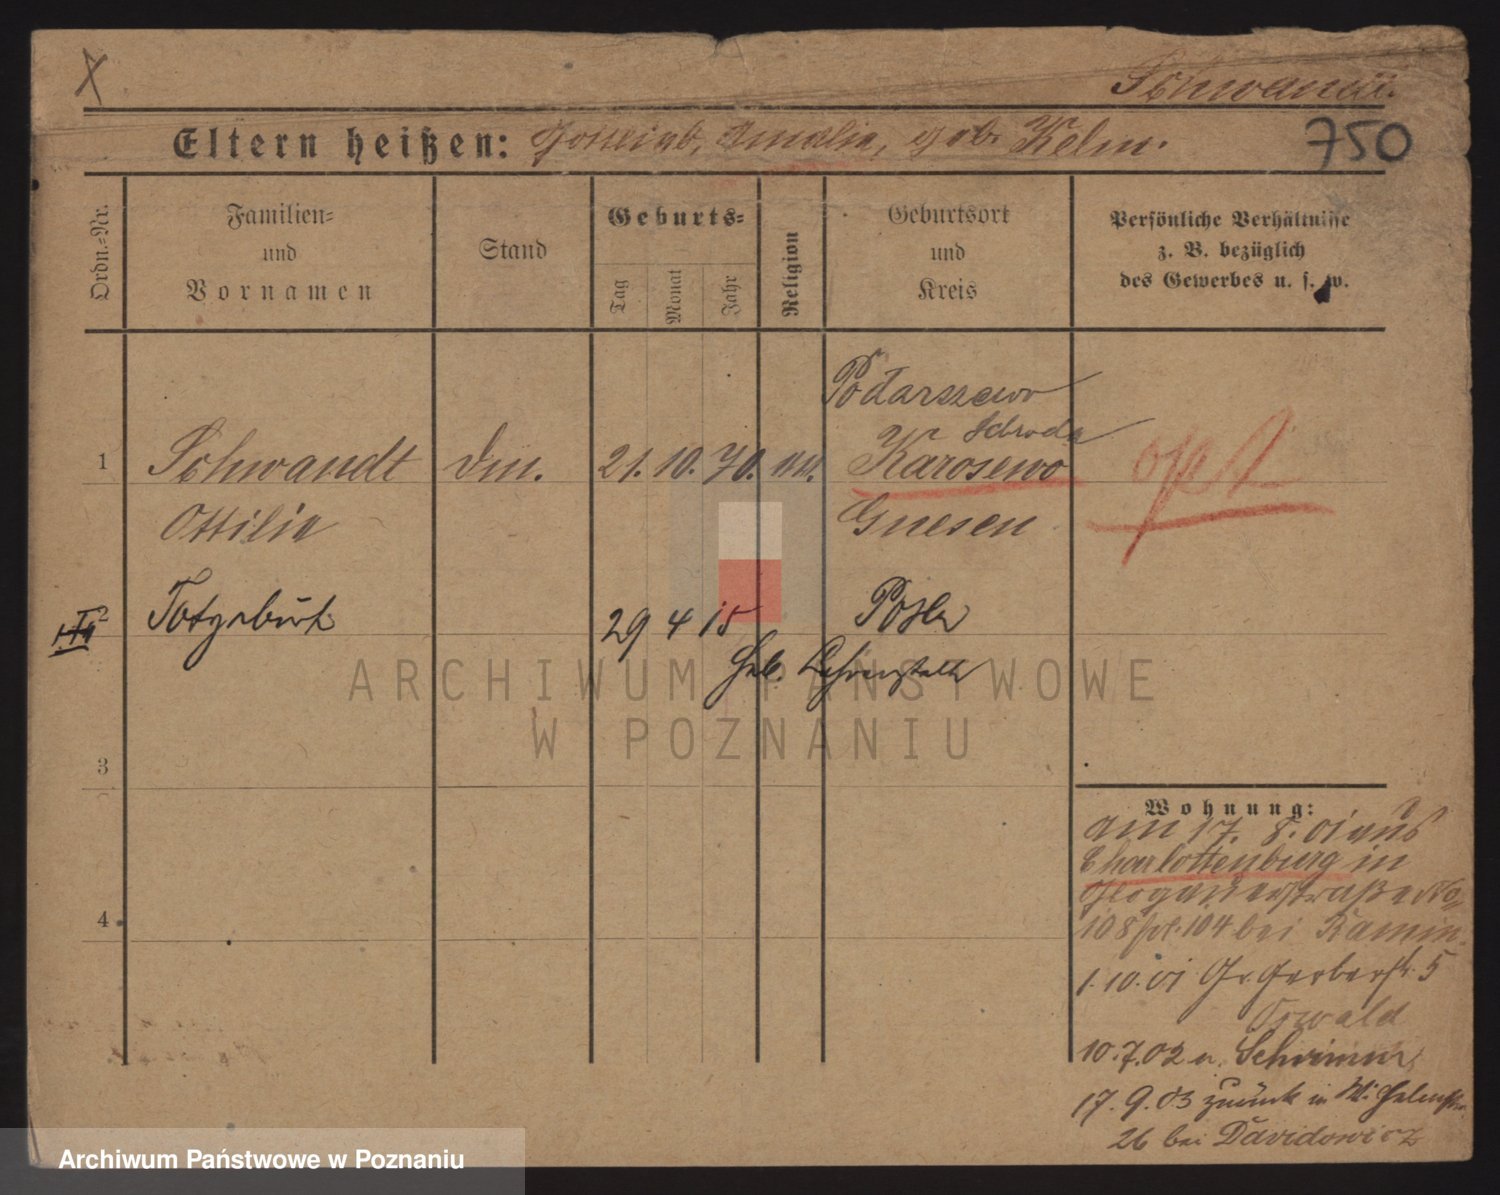 Eltern heißen: Gottlieb, Amalia, geb. Kelm.
750
Ordn.-Nr.
Familien-
und
Vornamen
Stand
Geburts-
Tag
Monat
Jahr
Religion
Geburtsort
und
Kreis
Persönliche Verhältnisse
z. B. bezüglich
des Gewerbes u. s. w.
Schroda
1 Schwandt 21. 10. 70. Karosewo
Ottilie Gnesen
2 Totgeburt 29 4 15 Posen
Heb. Lehranstalt
3
4
Wohnung:
am 17. 8. 01 aus
Charlottenburg in
Glogauerstraße No
108 104 bei Kamin.
1. 10. 01 Gr. Gerberstr. 5
Oswald
10. 7. 02 n. Schrimm
17. 9. 03 zurück in
26 bei Davidowicz
ARCHIWUM PAŃSTWOWE
W POZNANIU
Archiwum Państwowe w Poznaniu